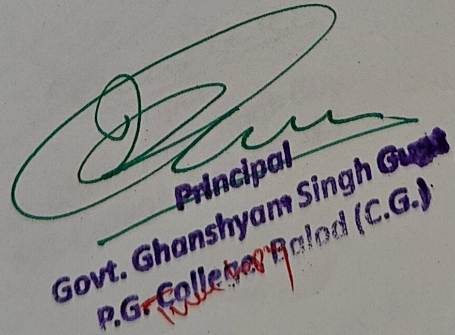 Principal
Govt. Ghanshyam Singh Gupt
P.G. College Balod (C.G.)